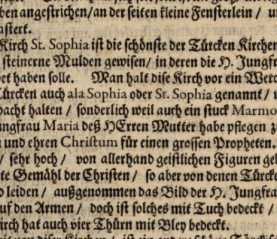 ben angestrichen/ an der seiten kleine Fensterlein / u
astert.
Kirch St. Sophia ist die schönste der Türcken Kirchen
steinerne Mulden gewisen/ in deren die H. Jungfr
et haben solle. Man halt dise Kirch vor ein Werc
ürcken auch ala Sophia oder Sr. Sophia genannt / u
bacht halten / sonderlich weil auch ein stuck Marmo
ungfrau Maria deß HErren Mutter habe pflegen
und ehren Christum für einen grossen Propheten.
/ sehr hoch / von allerhand geistlichen Figuren gel
te Gemähl der Christen / so aber von denen Türcke
leiden / außgenommen das Bild der H. Jungfra
uf den Armen / doch ist solches mit Tuch bedeckt /
irch hat auch vier Thürn mit Bley bedeckt.